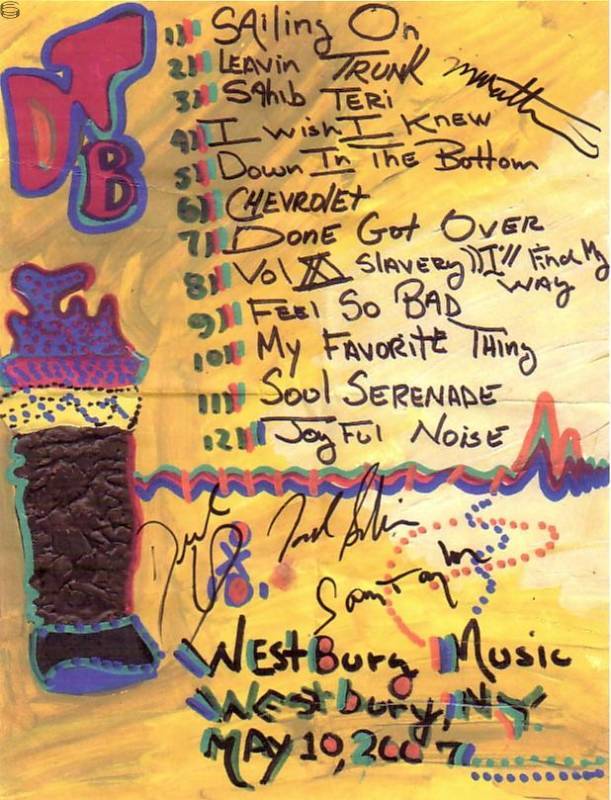 DTB
1) SAiling On
2) LEAVin TRUNK
3) SAhib TERi
4) I wish I KNEW
5) Down In The Bottom
6) CHEVROLET
7) DONE Got OVER
8) Vol SLAVERY)) I'll Find My
WAY
9) FEEl So BAD
10) My FAVORITE Thing
11) Soul SERENADE
12) Joy Ful NoisE
WEstBury Music
WEstbury, NY.
MAY 10, 2007